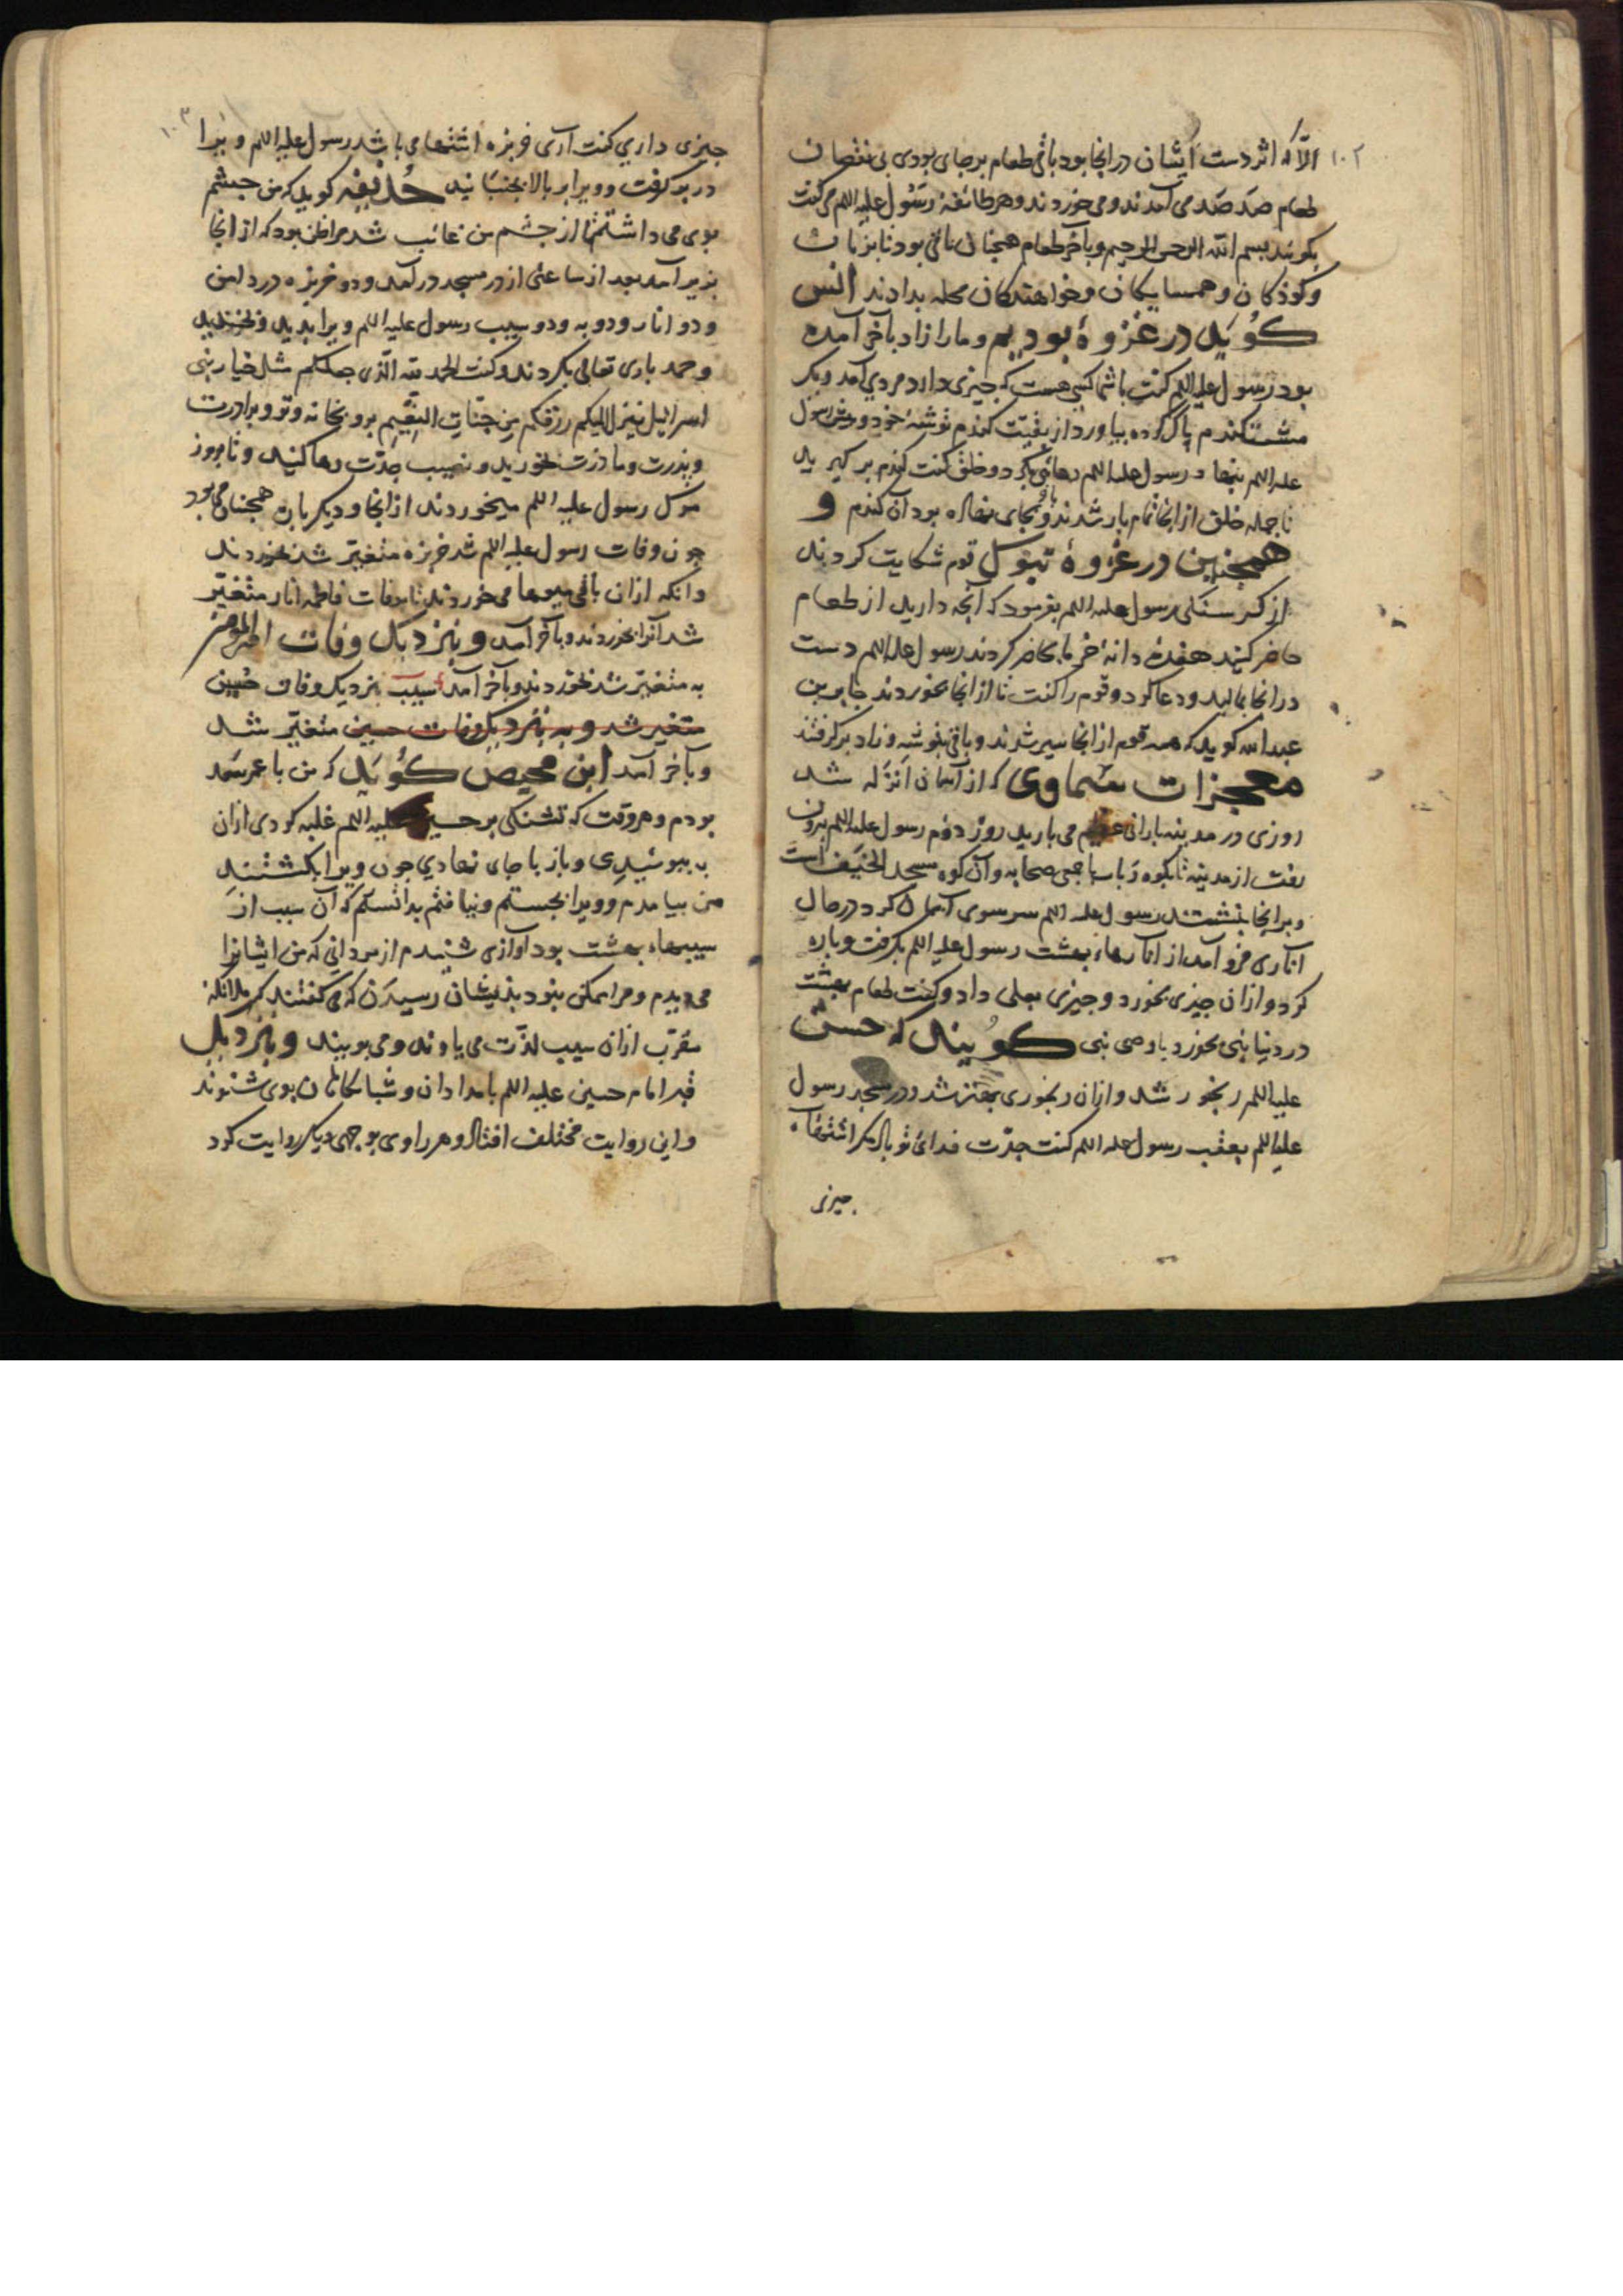 ۱۰۲
الّا که اثر دست ایشان در انجا بود باقی طعام بر جای بودی بی نقصان
طعام صد صد می آمدند و می خوردند و هر طائفه رسول علیه اللم می کفت
بکوئید بسم الله الرحمن الرحیم و بآخر طعام همچنان باقی بود تا بزنان
و کوذکان و همسایکان و خواهندکان محله بدادند انس
کوید در غزوهٔ بودیم و ما را زاد بآخر آمده
بود رسول علیه اللم کفت با شما کسی هست که چیزی دارد مردی آمد و یک
مشت کندم پاک کرده بیاورد از بقیت کندم توشهٔ خود و پیش رسول
علیه اللم بنهاد رسول علیه اللم دعائی بکرد و خلق کفت کندم بر کیرید
تا جمله خلق از انجا تمام بار شدند و بجای نهاده بود آن کندم و
همچنین در غزوهٔ تبوک قوم شکایت کردند
از کرسنکی رسول علیه اللم بفرمود که آنچه دارید از طعام
حاضر کنید هفده دانهٔ خرما حاضر کردند رسول علیه اللم دست
در انجا بمالید و دعا کرد و قوم را کفت تا از انجا بخوردند جابر بن
عبد الله کوید که همه قوم از انجا سیر شدند و باقی بتوشه و زاد بر کرفتند
معجزات سماوی که از آسمان انزله شد
روزی در مدینه بارانی عظیم می بارید روز دوم رسول علیه اللم بیرون
رفت از مدینه تا بکوه ذباب با جمعی صحابه و آن کوه مسجد الخیف است
و بر انجا بنشستند رسول علیه اللم سر سوی آسمان کرد در حال
اناری فرو آمد از انارهاء بهشت رسول علیه اللم بکرفت و پاره
کرد و ازان چیزی بخورد و چیزی بعلی داد و کفت طعام بهشت
در دنیا نبی بخورد یا وصی نبی کویند که حسن
علیه اللم رنجور شد و ازان رنجوری بهتر شد و در مسجد رسول
علیه اللم بعقب رسول علیه اللم کفت جدّت فدای تو باد دیکر اشتهاء
چیزی
۱۰۳
چیزی داری کفت آری خربزه اشتهام می باشد رسول علیه اللم ویرا
در بر کرفت و ویرا بر بالا بجنبانید حذیفه کوید که من چشم
بوی می داشتم تا از چشم من غائب شد مرا ظن بود که از انجا
بزیر آمد بعد از ساعتی از در مسجد در آمد و دو خربزه در دامن
و دو انار و دو به و دو سیب رسول علیه اللم ویرا بدید و بخندید
و حمد باری تعالی بکردند و کفت الحمد لله الّذی جعلکم مثل خیار بنی
اسرائیل ینزل الیکم رزقکم من جنّات النّعیم برو بخانه و تو و برادرت
و پذرت و ماذرت بخورید و نصیب جدّت رها کنید و تا بروز
مرک رسول علیه اللم میخوردند از انجا و دیکر بار همچنان می بود
چون وفات رسول علیه اللم شد خربزه متغیّر شد بخوردند
و انکه ازان باقی میوها می خوردند تا بوفات فاطمه انار متغیّر
شد آنرا بخوردند و بآخر آمد و بنزدیک وفات امیر المؤمنین
به متغیّر شد بخوردند و بآخر آمد سیب بنزدیک وفات حسین
متغیر شد و به بنزدیک وفات حسین متغیّر شد
و بآخر آمد ابن محیص کوید که من با عمر سعد
بودم و هر وقت که تشنکی بر حسین علیه اللم غلبه کردی ازان
به ببوئیدی و باز با جای نهادی چون ویرا بکشتند
من بیامدم و ویرا بجستم و نیافتم بدانستم که آن سیب از
سیبهاء بهشت بود آوازی شنیدم از مردانی که من ایشانرا
می دیدم و مرا ممکن نبود بذیشان رسیدن که می کفتند که ملائکهٔ
مقرّب ازان سیب لذّت می یاوند و می بویند و بنزدیک
قبر امام حسین علیه اللم بامدادان و شبانکاهان بوی شنوند
و این روایت مختلف افتاد و هر راوی بوجهی دیکر روایت کرد